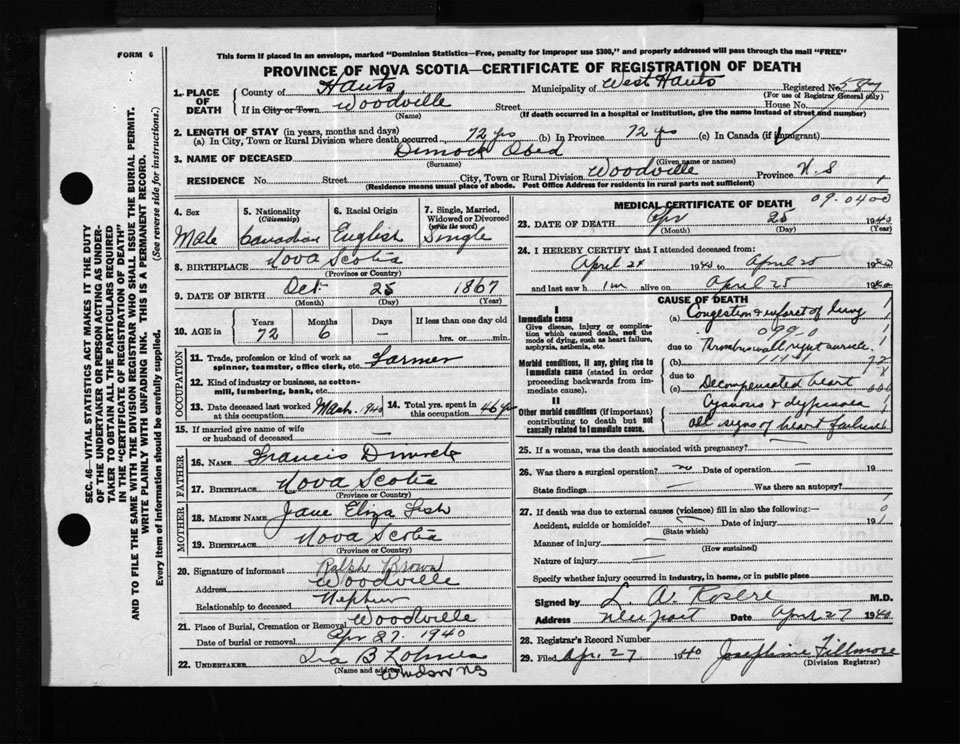 FORM 6
This form if placed in an envelope, marked "Dominion Statistics—Free, penalty for improper use $300," and properly addressed will pass through the mail "FREE"
PROVINCE OF NOVA SCOTIA—CERTIFICATE OF REGISTRATION OF DEATH
SEC. 46—VITAL STATISTICS ACT MAKES IT THE DUTY
OF THE UNDERTAKER OR PERSON ACTING AS UNDER-
TAKER TO OBTAIN ALL THE PARTICULARS REQUIRED
IN THE "CERTIFICATE OF REGISTRATION OF DEATH"
AND TO FILE THE SAME WITH THE DIVISION REGISTRAR WHO SHALL ISSUE THE BURIAL PERMIT.
WRITE PLAINLY WITH UNFADING INK. THIS IS A PERMANENT RECORD.
Every item of Information should be carefully supplied. (See reverse side for instructions.)
1. PLACE OF DEATH
County of Hants Municipality of West Hants Registered No.
(For use of Registrar General only)
If in City or Town Woodville Street House No.
(Name) (If death occurred in a hospital or institution, give the name instead of street and number)
2. LENGTH OF STAY (in years, months and days)
(a) In City, Town or Rural Division where death occurred 72 yrs (b) In Province 72 yrs (c) In Canada (if immigrant)
3. NAME OF DECEASED Dimock Obed
(Surname) (Given name or names)
RESIDENCE No. Street City, Town or Rural Division Woodville Province N.S
(Residence means usual place of abode. Post Office Address for residents in rural parts not sufficient)
4. Sex Male
5. Nationality (Citizenship) Canadian
6. Racial Origin English
7. Single, Married, Widowed or Divorced (write the word) Single
8. BIRTHPLACE Nova Scotia
(Province or Country)
9. DATE OF BIRTH Oct 25 1867
(Month) (Day) (Year)
10. AGE in Years Months Days If less than one day old
72 6 — hrs. or min.
OCCUPATION
11. Trade, profession or kind of work as spinner, teamster, office clerk, etc. Farmer
12. Kind of industry or business, as cotton-mill, lumbering, bank, etc.
13. Date deceased last worked at this occupation Mach. 1940
14. Total yrs. spent in this occupation 46 yrs
15. If married give name of wife or husband of deceased —
FATHER
16. NAME Francis Dimock
17. BIRTHPLACE Nova Scotia
(Province or Country)
MOTHER
18. MAIDEN NAME Jane Eliza Fish
19. BIRTHPLACE Nova Scotia
(Province or Country)
20. Signature of informant Ralph Brown
Address Woodville
Relationship to deceased Nephew
21. Place of Burial, Cremation or Removal Woodville
Date of burial or removal Apr 27. 1940
22. UNDERTAKER Ira B Lohnes
(Name and address) Windsor NS
MEDICAL CERTIFICATE OF DEATH 09-0400
23. DATE OF DEATH Apr 25 1940
(Month) (Day) (Year)
24. I HEREBY CERTIFY that I attended deceased from:
April 24 1940 to April 25 1940
and last saw him alive on April 25 1940
CAUSE OF DEATH
I
Immediate cause
Give disease, injury or complication which caused death, not the mode of dying, such as heart failure, asphyxia, asthenia, etc.
(a) Congestion & infarct of lung
099-0
due to Thrombus wall right auricle
Morbid conditions, if any, giving rise to immediate cause (stated in order proceeding backwards from immediate cause).
(b)
due to
(c) Decompensated heart
II
Other morbid conditions (if important) contributing to death but not causally related to immediate cause.
Cyanosis & dyspnoea
all signs of heart failure
25. If a woman, was the death associated with pregnancy? —
26. Was there a surgical operation? no Date of operation — 19
State findings — Was there an autopsy?
27. If death was due to external causes (violence) fill in also the following:—
Accident, suicide or homicide? Date of injury 19
(State which)
Manner of injury —
(How sustained)
Nature of injury —
Specify whether injury occurred in industry, in home, or in public place
Signed by M.D.
Address Newport Date April 27 1940
28. Registrar's Record Number
29. Filed Apr. 27 1940 Josephine Fillmore
(Division Registrar)